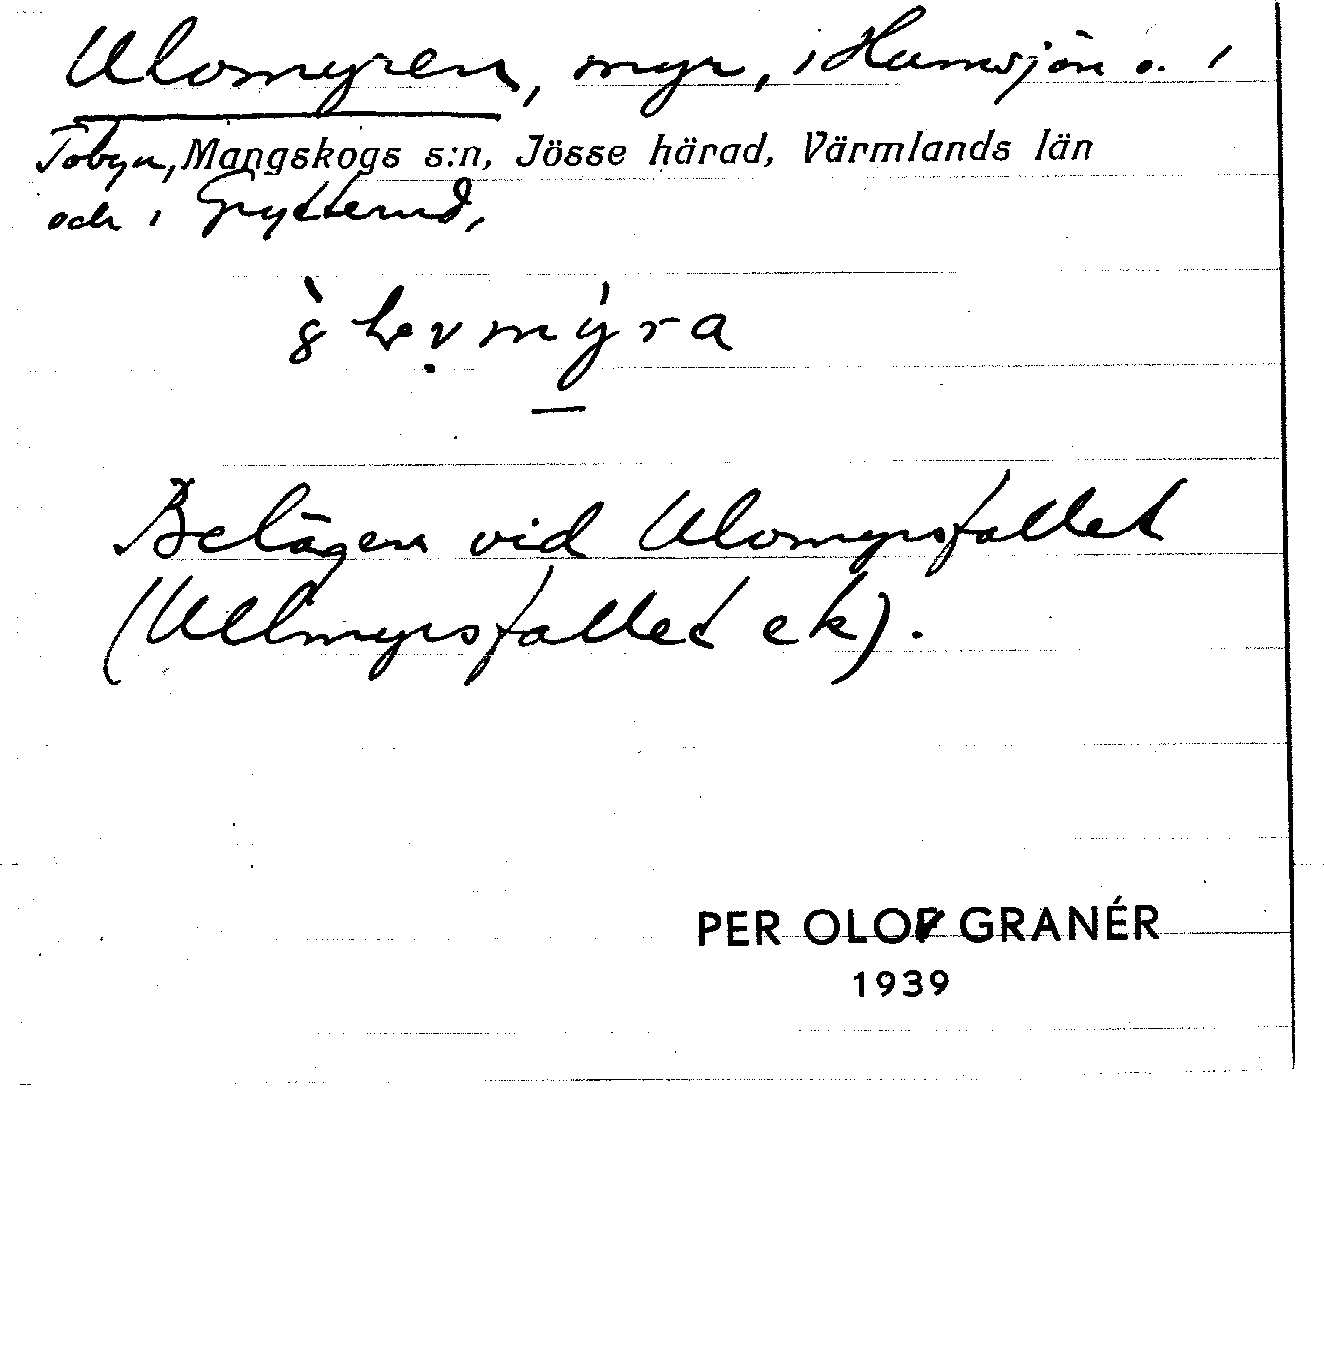 Ulomyren, myr, i Humsjön o. i
Tobyn, Mangskogs s:n, Jösse härad, Värmlands län
och i Grytterud,
myra
Belägen vid Ulomyrsfallet
(Ullmyrsfallet ek).
PER OLOF GRANÉR
1939